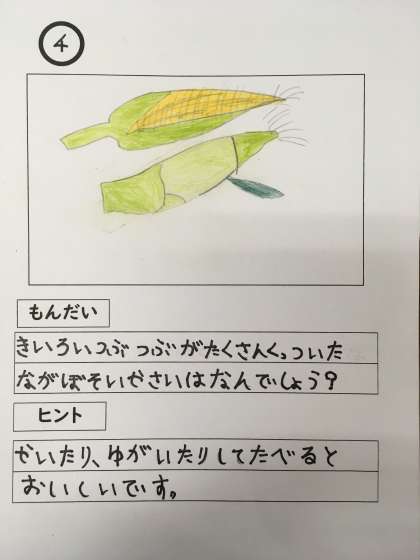 4
もんだい
きいろいつぶつぶがたくさんくっついた
ながぼそいやさいはなんでしょう?
ヒント
やいたり、ゆがいたりしてたべると
おいしいです。